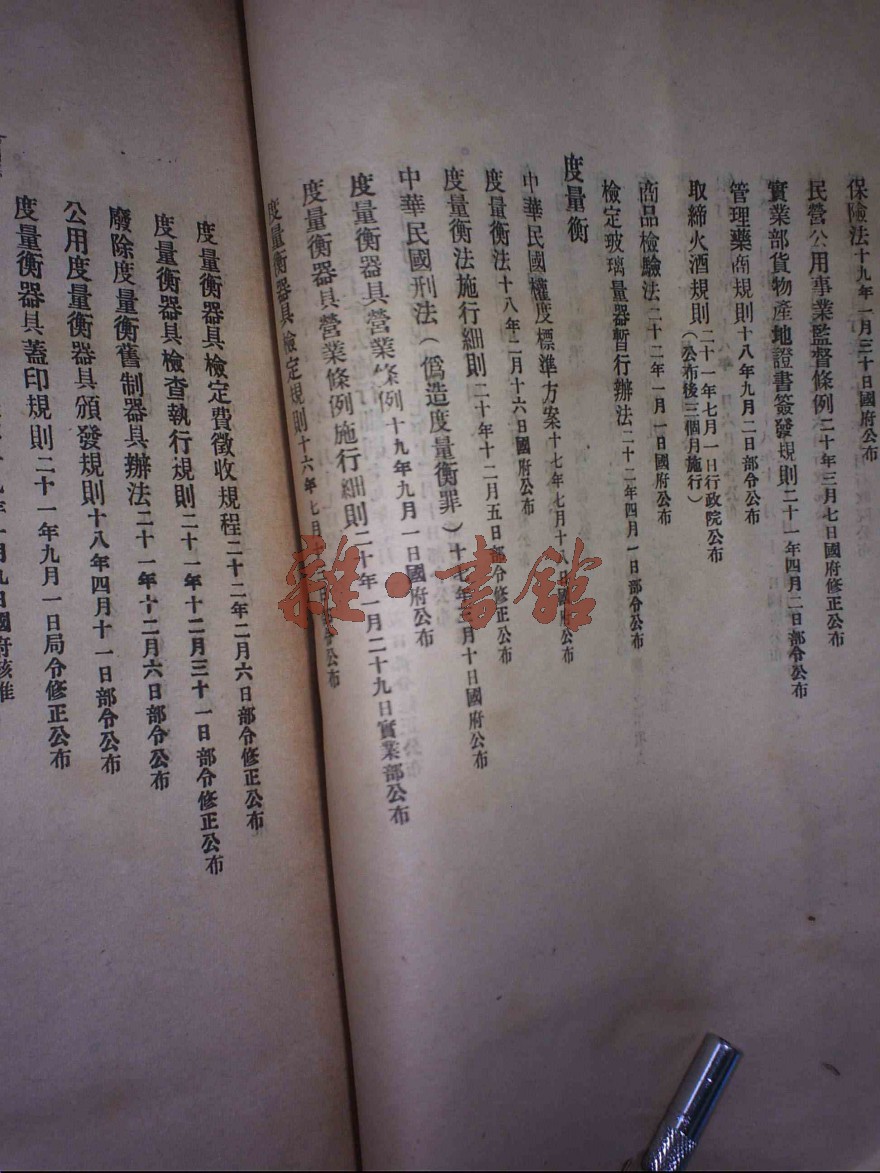 保險法十九年一月三十日國府公布
民營公用事業監督條例二十年三月七日國府修正公布
實業部貨物產地證書簽發規則二十一年四月二日部令公布
管理藥商規則十八年九月二日部令公布
取締火酒規則二十一年七月一日行政院公布(公布後三個月施行)
商品檢驗法二十二年一月一日國府公布
檢定玻璃量器暫行辦法二十二年四月一日部令公布
度量衡
中華民國權度標準方案十七年七月十八日國府公布
度量衡法十八年二月十六日國府公布
度量衡法施行細則二十年十二月五日部令公布
中華民國刑法(僞造度量衡罪)十七年三月十日國府公布
度量衡器具營業條例十九年九月一日國府公布
度量衡器具營業條例施行細則二十年一月二十九日實業部公布
度量衡器具檢定規則十六年七月 部令公布
度量衡器具檢定費徵收規程二十二年二月六日部令修正公布
度量衡器具檢查執行規則二十一年十二月三十一日部令修正公布
廢除度量衡舊制器具辦法二十一年十二月六日部令公布
公用度量衡器具頒發規則十八年四月十一日部令公布
度量衡器具蓋印規則二十一年九月一日局令修正公布
九日國府核准
雜·書館